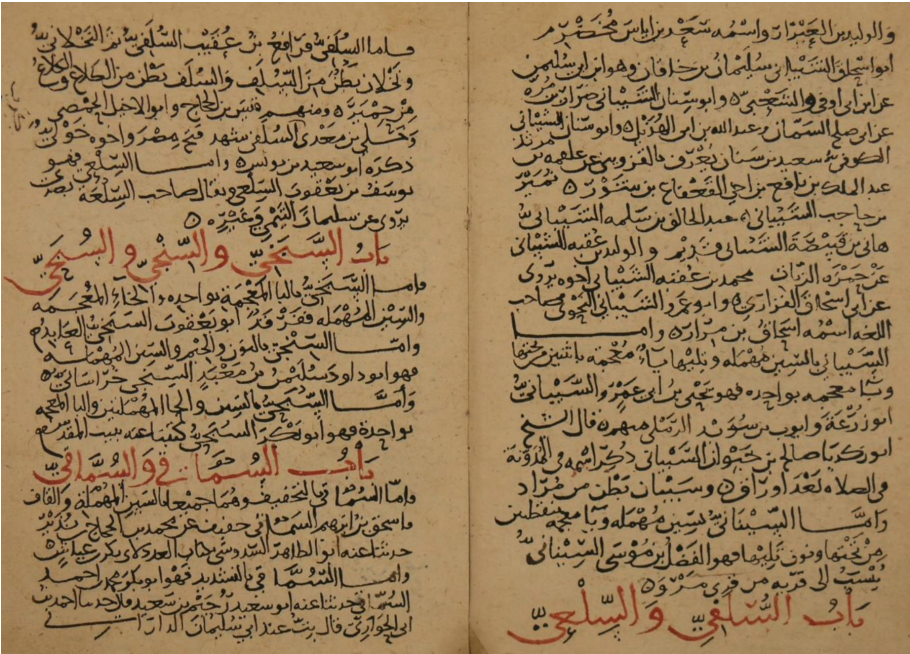 والوليد بن العيزار واسمه سعد بن اياس مخضرم
ابو اسحاق الشيباني سليمان بن خاقان وهو ابن ابي سليمن
عن ابن ابي اوفى والشعبي وابو سنان الشيباني ضرار بن مرة
عن ابي صالح السمان وعبد الله بن ابي الهذيل وابو سنان الشيباني
الكوفي سعيد بن سنان يعرف بالقزويني عن علقمه بن مرثد
عبد الملك بن نافع بن اخي القعقاع بن شور نمير
بن حاجب الشيباني عبد الخالق بن سلمه الشيباني
هاني بن قبيصة الشيباني قديم والوليد بن عقبه الشيباني
عن حمزه الزيات محمد بن عقبه الشيباني اخوه يروي
عن ابي اسحاق الفزاري وابو عمرو الشيباني النحوي صاحب
اللغه اسمه اسحاق بن مرار واما
السيباني السين مهمله ويليها ياء معجمه باثنين من تحتها
وبا معجمه بواحده فهو يحيى بن ابي عمرو السيباني
ابو زرعة وايوب بن سويد الرملي منهم قال الشيخ
ابو زكريا صالح بن خيوان السبائي ذكر اسمه في المدونة
في الصلاه بعد اوراق وسيبان بطن من مراد
واما السيناني بسين مهمله ويا معجمه بنقطتين
من تحتها ونون تليها فهو الفضل بن موسى السيناني
ينسب الى قريه من قرى مرو
باب السلفي والسلعي
فاما السلفي فرافع بن عقيب السلفي ثم النخلاني
ونخلان بطن من السلف والسلف بطن من الكلاع والكلاع
من حمير ومنهم قيس بن الحجاج وابو الاخيل الحمصي
وخلي بن معدي السلفي شهد فتح مصر واخوه خولي
ذكره ابو سعيد بن يونس واما السلعي فهو
يوسف بن يعقوب السلعي ويقال صاحب السلعه
يروي عن سليمان التيمي وغيره
باب السبخي والسنجي والسبحي
فاما السبخي بالبا المعجمة بواحده والخاء المعجمه
والسين المهمله ففرقد ابو يعقوب السبخي العابد
واما السنجي بالنون والجيم والسين المهمله
فهو ابو داود سليمن بن معبد السنجي خراساني
واما السبحي بالسين والحا المهملتين والبا المعجمه
بواحدة فهو ابو بكر السبحي كتبنا عنه ببيت المقدس
باب السماقي والسماقي
فاما السماقي بالتخفيف وهما جميعا بالسين المهمله والقاف
فاسحق بن ابرهيم السماقي خفيف عن محمد بن الحجاج بن نذير
حدثنا عنه ابو الطاهر السدوسي بكتاب العدد لابي بكر بن عياش
واما السماقي بالتشديد فهو ابو بكر محمد بن احمد
السماقي حدثنا عنه ابو سعيد بن دحيم بن سعيد قال حدثنا احمد بن
ابي الحواري قال بت عند ابي سليمان الداراني